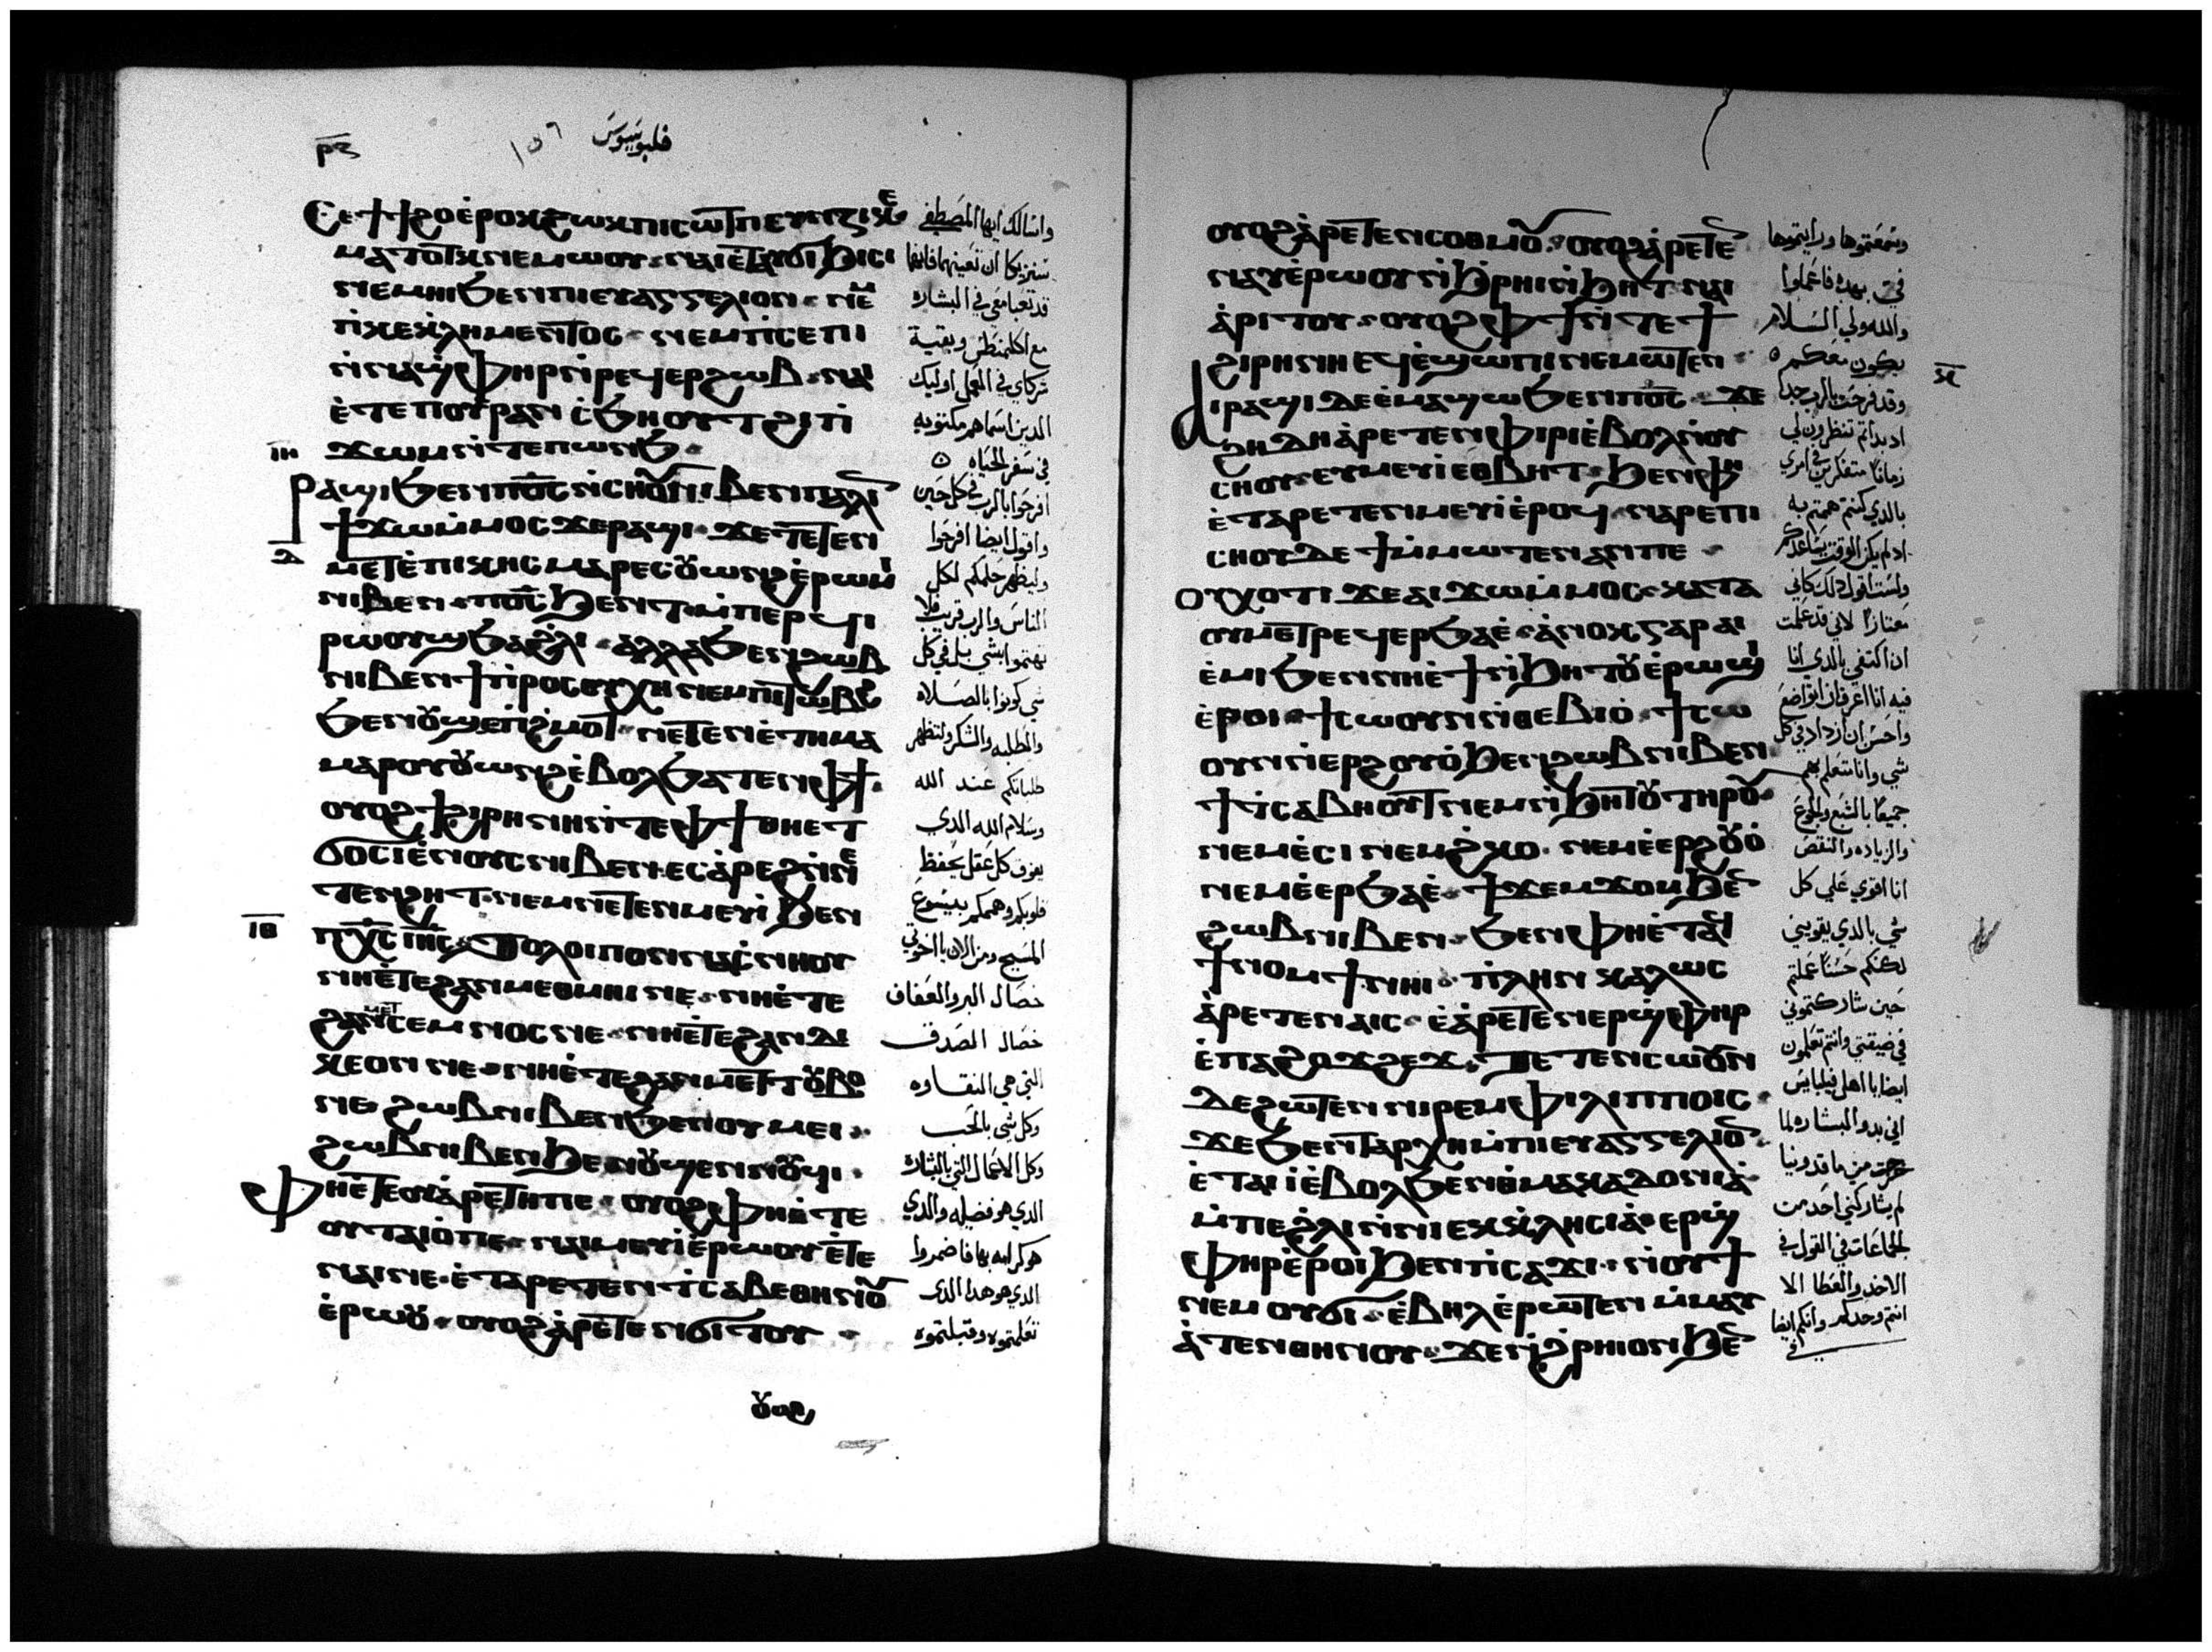 ⲣⲝ
فليوسيوس
١٥٦
Ⲥⲉϯϯϩⲟ ⲉ̀ⲣⲟⲕ ϩⲱⲕ ⲡⲓⲥⲱⲧⲡ ⲉⲩⲛⲍⲓⲕⲉ
ⲙⲁⲧⲟⲧⲕ ⲛⲉⲙⲱⲟⲩ ⲛⲁⲓ ⲉ̀ⲧⲁⲩϭⲓϧⲓⲥⲓ
ⲛⲉⲙⲏⲓ ϧⲉⲛ ⲡⲓⲉⲩⲁⲅⲅⲉⲗⲓⲟⲛ ⲛⲉⲙ
ⲡⲕⲉⲕ̀ⲗⲏⲙⲉⲛⲧⲟⲥ ⲛⲉⲙ ⲡ̀ⲥⲉⲡⲓ
ⲛ̀ⲛⲁϣⲫⲏⲣ ⲛ̀ⲣⲉϥⲉⲣϩⲱⲃ ⲛⲁⲓ
ⲉ̀ⲧⲉ ⲡⲟⲩⲣⲁⲛ ⲥ̀ϧⲏⲟⲩⲧ ϩⲓ ⲡ̀
ϫⲱⲙ ⲛ̀ⲧⲉ ⲡⲱⲛϧ
ⲓⲏ
Ⲣⲁϣⲓ ϧⲉⲛ ⲡⲟ̅ⲥ̅ ⲛ̀ⲥⲏⲟⲩ ⲛⲓⲃⲉⲛ ⲡⲁⲗⲓⲛ
ϯϫⲱ ⲙ̀ⲙⲟⲥ ϫⲉ ⲣⲁϣⲓ ϫⲉ ⲧⲉⲧⲉⲛ
ⲇ
ⲙⲉⲧⲉ̀ⲡⲓⲕⲏⲥ ⲙⲁⲣⲉⲥⲟⲩⲱⲛϩ ⲉ̀ⲣⲱⲙⲓ
ⲛⲓⲃⲉⲛ ⲡⲟ̅ⲥ̅ ϧⲉⲛⲧ ⲙ̀ⲡⲉⲣϥⲓ
ⲣⲱⲟⲩϣ ϧⲁ ϩ̀ⲗⲓ ⲁⲗⲗⲁ ϧⲉⲛ ϩⲱⲃ
ⲛⲓⲃⲉⲛ ϯⲡ̀ⲣⲟⲥⲉⲩⲭⲏ ⲛⲉⲙ ⲡⲓⲧⲱⲃϩ
ϧⲉⲛ ⲟⲩϣⲉⲡϩ̀ⲙⲟⲧ ⲛⲉⲧⲉⲛⲉ̀ⲧⲏⲙⲁ
ⲙⲁⲣⲟⲩⲟⲩⲱⲛϩ ⲉ̀ⲃⲟⲗ ϧⲁⲧⲉⲛ ⲫϯ
ⲟⲩⲟϩ ϯϩⲓⲣⲏⲛⲏ ⲛ̀ⲧⲉ ⲫϯ ⲑⲏⲉⲧ
ϭⲟⲥⲓ ⲉ̀ⲛⲟⲩⲥ ⲛⲓⲃⲉⲛ ⲉⲥⲁ̀ⲣⲉϩ ⲛ̀ⲛⲉ
ⲧⲉⲛϩⲏⲧ ⲛⲉⲙ ⲛⲉⲧⲉⲛⲙⲉⲩⲓ̀ ϧⲉⲛ
ⲓⲑ
ⲡⲭ̅ⲥ̅ ⲓⲏ̅ⲥ̅ Ⲧⲟⲗⲟⲓⲡⲟⲛ ⲛⲁⲥ̀ⲛⲏⲟⲩ
ⲛⲏⲉ̀ⲧⲉ ϩⲁⲛⲙⲉⲑⲙⲏⲓ ⲛⲉ ⲛⲏⲉ̀ⲧⲉ
ϩⲁⲛⲙⲉⲧⲥⲉⲙⲛⲟⲥ ⲛⲉ ⲛⲏⲉ̀ⲧⲉ ϩⲁⲛⲇⲓ
ⲕⲉⲟⲛ ⲛⲉ ⲛⲏⲉ̀ⲧⲉ ϩⲁⲛⲙⲉⲧⲧⲟⲩⲃⲟ
ⲛⲉ ϩⲱⲃ ⲛⲓⲃⲉⲛ ϧⲉⲛ ⲟⲩⲙⲉⲓ
ϩⲱⲃ ⲛⲓⲃⲉⲛ ϧⲉⲛ ⲟⲩϣⲉⲛⲛⲟⲩϥⲓ
Ⲫⲏⲉ̀ⲧⲉ ⲟⲩⲁ̀ⲣⲉⲧⲏ ⲡⲉ ⲟⲩⲟϩ ⲫⲏⲉ̀ⲧⲉ
ⲟⲩⲧⲁⲓⲟ̀ ⲡⲉ ⲛⲁⲓ ⲙⲉⲩⲓ̀ ⲉ̀ⲣⲱⲟⲩ ⲉ̀ⲧⲉ
ⲛⲁⲓ ⲛⲉ ⲉ̀ⲧⲁⲣⲉⲧⲉⲛⲧ̀ⲥⲁⲃⲉ ⲑⲏⲛⲟⲩ
ⲉ̀ⲣⲱⲟⲩ ⲟⲩⲟϩ ⲁ̀ⲣⲉⲧⲉⲛϭⲓⲧⲟⲩ
ⲟⲩⲟϩ
واسالك ايها المصطفى
سنزيكا ان تعينهما فانهما
قد تعبا معي في البشاره
مع اكليمنطس وبقية
شركاي في العمل اوليك
الدين اسماهم مكتوبه
في سفر الحياه
افرحوا بالرب في كل حين
واقول ايضا افرحوا
وليظهر حلمكم لكل
الناس والرب قريب فلا
تهتموا بشي بل في كل
شي كونوا بالصلاه
والطلبه والشكر ولتظهر
طلباتكم عند الله
وسلام الله الدي
يفوق كل عقل يحفظ
قلوبكم وهممكم بيسوع
المسيح ومن الان يا اخوتي
خصال البر والعفاف
خصال الصدق
التي هي النقاوه
وكل شي بالحب
وكل الاعمال التي بالبشاره
الدي هو فضيله والدي
هو كرامه بها فاضمروا
الدي هو هدا الدي
تعلمتموه وقبلتموه
ⲟⲩⲟϩ ⲁ̀ⲣⲉⲧⲉⲛⲥⲟⲑⲙⲟⲩ ⲟⲩⲟϩ ⲁ̀ⲣⲉⲧⲉⲛ
ⲛⲁⲩ ⲉ̀ⲣⲱⲟⲩ ⲛ̀ϧ̀ⲣⲏⲓ ⲛ̀ϧⲏⲧ ⲛⲁⲓ
ⲁ̀ⲣⲓⲧⲟⲩ ⲟⲩⲟϩ ⲫϯ ⲛ̀ⲧⲉ ϯ
ϩⲓⲣⲏⲛⲏ ⲉϥⲉ̀ϣⲱⲡⲓ ⲛⲉⲙⲱⲧⲉⲛ
ⲕ
Ⲁⲓⲣⲁϣⲓ ⲇⲉ ⲉ̀ⲙⲁϣⲱ ϧⲉⲛ ⲡⲟ̅ⲥ̅ ϫⲉ
ϩⲏⲇⲏ ⲁ̀ⲣⲉⲧⲉⲛⲫⲓⲣⲓ ⲉ̀ⲃⲟⲗ ⲛ̀ⲟⲩ
ⲥⲏⲟⲩ ⲉⲩⲙⲉⲩⲓ ⲉⲑⲃⲏⲧ ϧⲉⲛ ⲫⲏ
ⲉ̀ⲧⲁⲣⲉⲧⲉⲛⲙⲉⲩⲓ̀ ⲉ̀ⲣⲟϥ ⲛⲁⲣⲉ ⲡⲓ
ⲥⲏⲟⲩ ⲇⲉ ϯ ⲙ̀ⲙⲱⲧⲉⲛ ⲁⲛ ⲡⲉ
ⲟⲩⲭⲟⲧⲓ ϫⲉ ⲁⲓϫⲱ ⲙ̀ⲙⲟⲥ ⲕⲁⲧⲁ
ⲟⲩⲙⲉⲧⲣⲉϥⲉⲣϧⲁⲉ̀ ⲁ̀ⲛⲟⲕ ⲅⲁⲣ ⲁⲓ
ⲉ̀ⲙⲓ ϧⲉⲛ ⲛⲏⲉ̀ϯⲛ̀ϧⲏⲧⲟⲩ ⲉ̀ⲣⲱϣⲓ
ⲉ̀ⲣⲟⲓ ϯⲥⲱⲟⲩⲛ ⲛ̀ⲑⲉⲃⲓⲟ̀ ϯⲥⲱ
ⲟⲩⲛ ⲛ̀ⲉⲣϩⲟⲩⲟ̀ ϧⲉⲛ ϩⲱⲃ ⲛⲓⲃⲉⲛ
ϯⲧ̀ⲥⲁⲃⲏⲟⲩⲧ ⲛⲉⲙ ⲛ̀ϧⲏⲧⲟⲩ ⲧⲏⲣⲟⲩ
ⲛⲉⲙ ⲉ̀ⲥⲓ ⲛⲉⲙ ϩ̀ⲕⲟ ⲛⲉⲙ ⲉ̀ⲉⲣϩⲟⲩⲟ̀
ⲛⲉⲙ ⲉ̀ⲉⲣϧⲁⲉ̀ ϯϫⲉⲙϫⲟⲙ ϧⲉⲛ
ϩⲱⲃ ⲛⲓⲃⲉⲛ ϧⲉⲛ ⲫⲏⲉ̀ⲧⲁϥ
ϯⲛⲟⲙϯ ⲛⲏⲓ ⲡ̀ⲗⲏⲛ ⲕⲁⲗⲱⲥ
ⲁ̀ⲣⲉⲧⲉⲛⲁⲓⲥ ⲉ̀ⲁⲣⲉⲧⲉⲛⲉⲣϣⲫⲏⲣ
ⲉ̀ⲡⲁϩⲟϫϩⲉϫ Ⲧⲉⲧⲉⲛⲥⲱⲟⲩⲛ
ⲇⲉ ϩⲱⲧⲉⲛ ⲛⲓⲣⲉⲙⲫⲓⲗⲓⲡⲡⲟⲓⲥ
ϫⲉ ϧⲉⲛ ⲧⲁⲣⲭⲏ ⲙ̀ⲡⲓⲉⲩⲁⲅⲅⲉⲗⲓⲟⲛ
ⲉ̀ⲧⲁⲓⲓ̀ ⲉ̀ⲃⲟⲗ ϧⲉⲛ ⲑⲙⲁⲕⲁⲇⲟⲛⲓⲁ̀
ⲙ̀ⲡⲉ ϩ̀ⲗⲓ ⲛ̀ⲛⲓⲉⲕⲕ̀ⲗⲏⲥⲓⲁ̀ ⲉⲣϣ
ⲫⲏⲣ ⲉ̀ⲣⲟⲓ ϧⲉⲛ ⲡ̀ⲥⲁϫⲓ ⲛ̀ⲟⲩϯ
ⲛⲉⲙ ⲟⲩϭⲓ ⲉ̀ⲃⲏⲗ ⲉ̀ⲣⲱⲧⲉⲛ ⲙ̀ⲙⲁⲩ
ⲁ̀ⲧⲉⲛ ⲑⲏⲛⲟⲩ ϫⲉ ⲛ̀ϩ̀ⲣⲏⲓ ⲟⲛ ϧⲉⲛ
وسمعتموها ورايتموها
في بهده فاعملوا
والله ولي السلام
يكون معكم
وقد فرحت بالرب جدا
اد بداتم تنظرون لي
زمانا متفكرين في امري
بالدي كنتم هممتم به
اد لم يكن الوقت يساعدكم
ولست اقول دلك كاني
معتازا لاني قد علمت
ان اكتفي بالدي انا
فيه انا اعرف ان اتواضع
واحسن ان ازداد في كل
شي وانا متعلم بهم
جميعا بالشبع والجوع
والزياده والنقص
انا اقوي على كل
شي بالدي يقويني
لكنكم حسنا عملتم
حين شاركتموني
في ضيقتي وانتم تعلمون
ايضا يا اهل فيلبايس
اني بدو البشاره لما
خرجت من ماقدونيا
لم يشاركني احد من
الجماعات في القول في
الاخد والعطا الا
انتم وحدكم وانكم ايضا
في